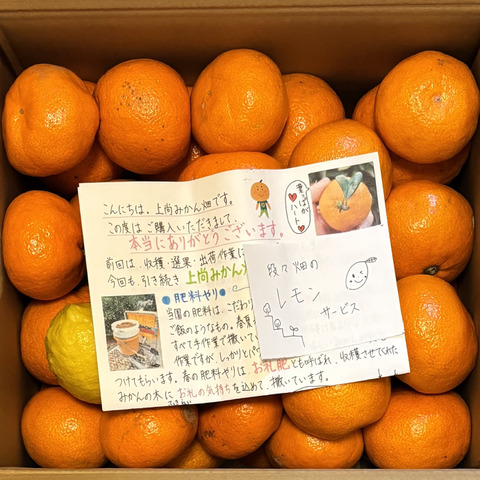 こんにちは。上尚みかん畑です。
この度は ご購入いただきまして、
本当にありがとうございます。
前回は、収穫・選果・出荷作業に
今回も、引き続き 上尚みかん
葉っぱが
ハート
段々畑の
レモン
サービス
肥料やり
当園の肥料は、こだわり
ご飯のようなもの。春夏
すべて手作業で撒いて
作業ですが、しっかりとパ
つけてもらいます。春の肥料やりは、お礼肥とも呼ばれ、収穫させてくれた
みかんの木に お礼の気持ちを込めて、撒いています。